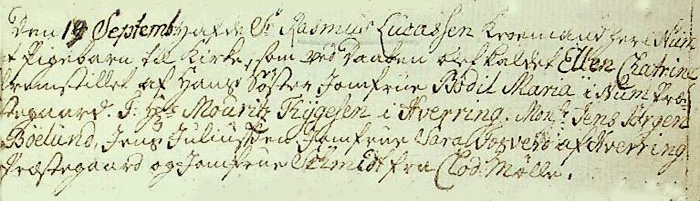 Den 19 Septemb: hafde Sr Rasmus Lucassen Kroemand her i Num
et Pigebarn til Kirke, som ved Daaben blef kaldet Ellen Chatrine
fremstillet af Hans Søster Jomfrue Bodil Maria i Num Præ-
stegaard. F: Hr Mouritz Trygesen i Hverring. Monsr Jens Jørgen
Böelund, Jens Juliussen Jomfrue Sara af Hverring
Præstegaard og Jomfrue Schmidt fra Clod: Mølle.